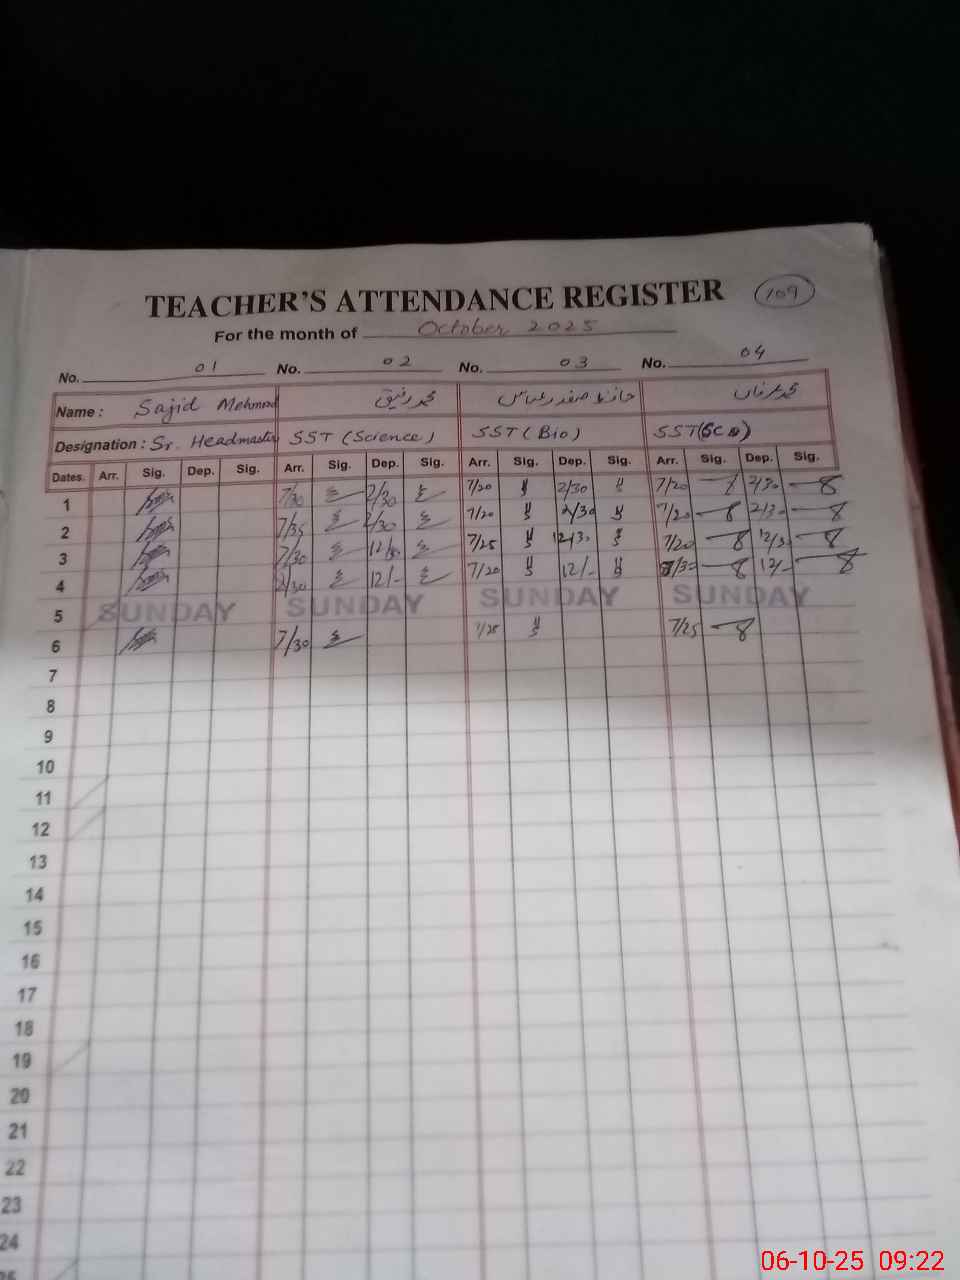 TEACHER'S ATTENDANCE REGISTER 109
For the month of October 2025
No. 01 No. 02 No. 03 No. 04
Name : Sajid Mehmood محمد رفیق حافظ صفدر عباس محمد عرفان
Designation : Sr. Headmaster SST (Science) SST (Bio) SST
Dates. Arr. Sig. Dep. Sig. Arr. Sig. Dep. Sig. Arr. Sig. Dep. Sig. Arr. Sig. Dep. Sig.
1 7/30 2/30 7/20 2/30 7/20 2/30
2 7/35 2/30 7/20 2/30 7/20 2/30
3 7/30 7/25 12/30 7/20 12/30
4 12/- 7/20 12/- 7/30 12/-
5 SUNDAY SUNDAY SUNDAY SUNDAY
6 7/30 7/25 7/25
7
8
9
10
11
12
13
14
15
16
17
18
19
20
21
22
23
24
25
06-10-25 09:22